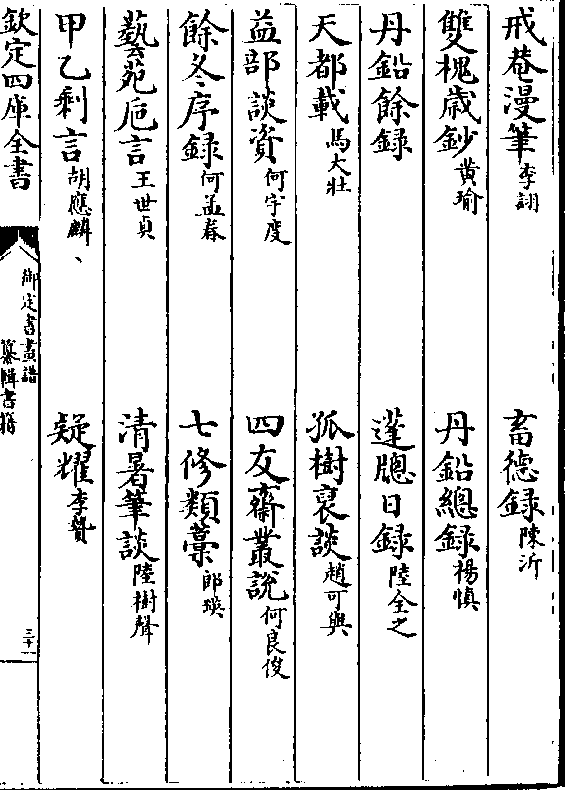 戒菴漫筆李詡　畜德録陳沂
雙槐歳鈔黄瑜　丹鉛總録楊慎
丹鉛餘録　蓬牕日録陸全之
天都載馬大壯　孤樹裒談趙可與
益部談資何宇度　四友齋叢說何良俊
餘冬序録何孟春　七修類藁郎瑛
藝苑巵言王世貞　清暑筆談陸樹聲
甲乙剩言胡應麟、　疑耀李贄
欽定四庫全書　御定書畫譜　纂輯書籍　三十一